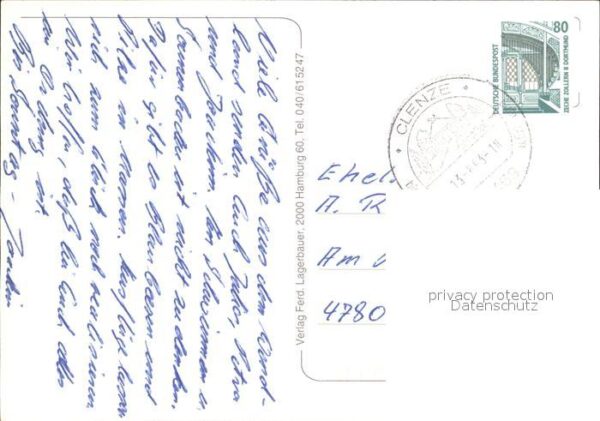 Viele Grüße aus dem Wend-
land senden Euch Jutta, Petra
und Jochen. An Schwimmen u.
Sonnenbaden ist nicht zu denken.
Dafür gibt es Blaubeeren und
Pilze in Massen. Ausflüge lassen
sich zum Glück noch realisieren.
Wir hoffen, daß bei Euch alles
in Ordnung ist.
Bis Sonntag -
Verlag Ferd. Lagerbauer, 2000 Hamburg 60, Tel. 040/615247
80
DEUTSCHE BUNDESPOST
ZECHE ZOLLERN II DORTMUND
CLENZE
Ehel
A. R
Am
4780
privacy protection
Datenschutz